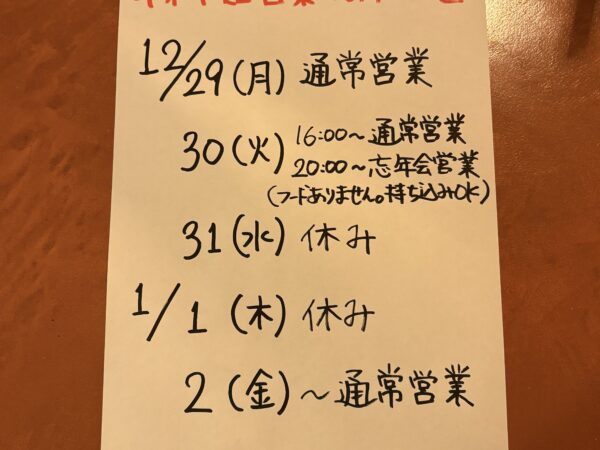 12/29(月) 通常営業
30(火) 16:00〜通常営業
20:00〜忘年会営業
(フードありません。持ち込みOK)
31(水) 休み
1/1(木) 休み
2(金)〜通常営業